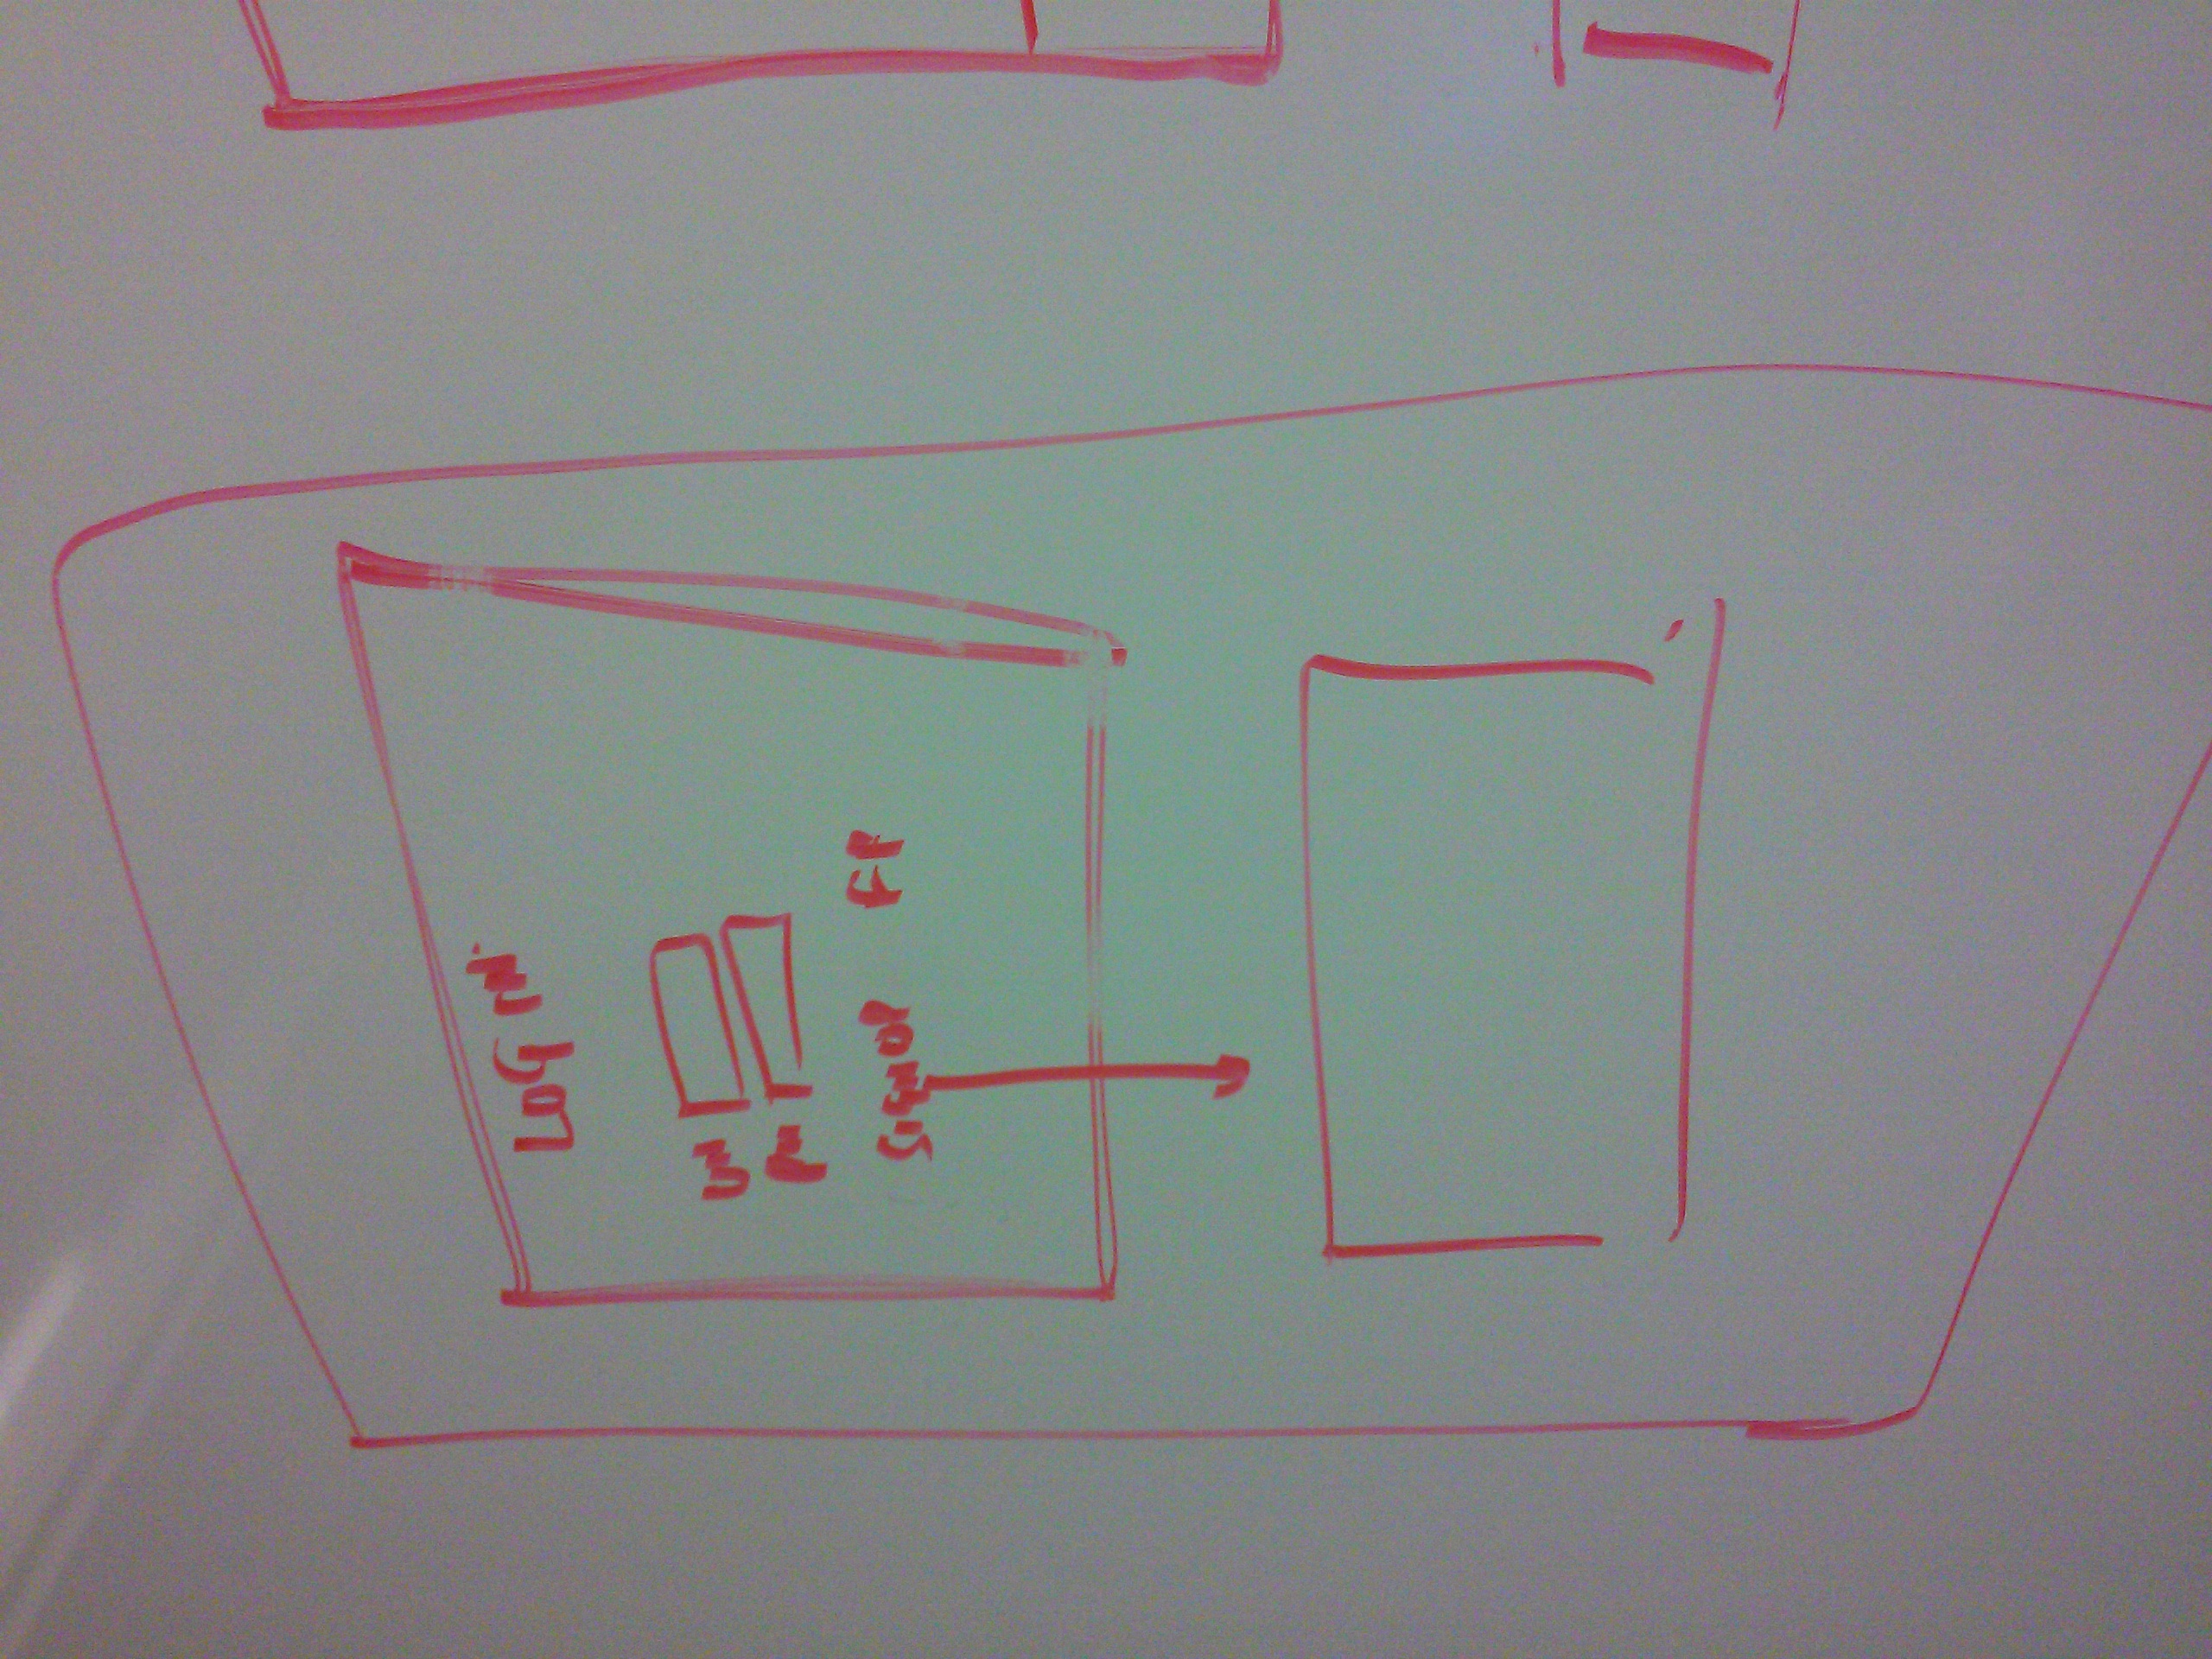 LOG IN
UN
PW
SIGNUP FP